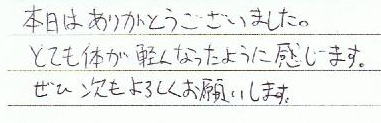 本日はありがとうございました。
とても体が軽くなったように感じます。
ぜひ次もよろしくお願いします。